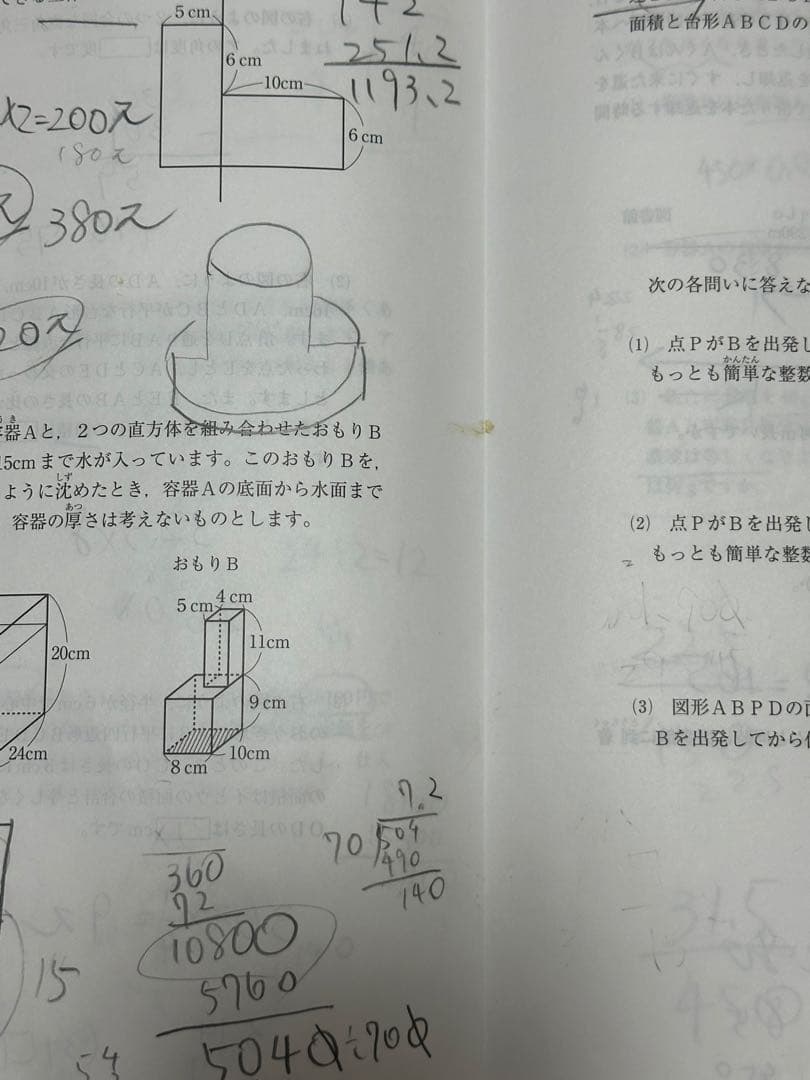 5cm
6cm
10cm
6cm
251.2
1193.2
×2=200π
180π
380π
20π
面積と台形ABCDの
次の各問いに答えな
(1) 点PがBを出発し
かんたん
もっとも簡単な整数
器Aと，2つの直方体を組み合わせたおもりB
15cmまで水が入っています。このおもりBを，
しず
ように沈めたとき，容器Aの底面から水面まで
あつ
容器の厚さは考えないものとします。
(2) 点PがBを出発し
もっとも簡単な整数
おもりB
5cm
4cm
11cm
20cm
9cm
24cm
8cm
10cm
(3) 図形ABPDの面
Bを出発してから
7.2
70
504
490
140
360
72
10800
5760
5040÷700
15
54